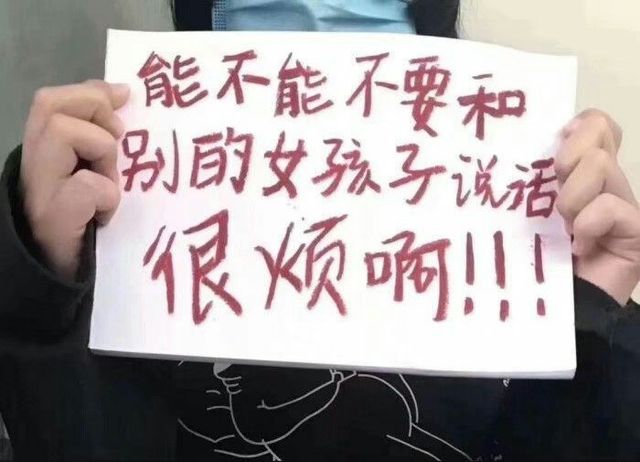 能不能不要和
别的女孩子说话
很烦啊!!!